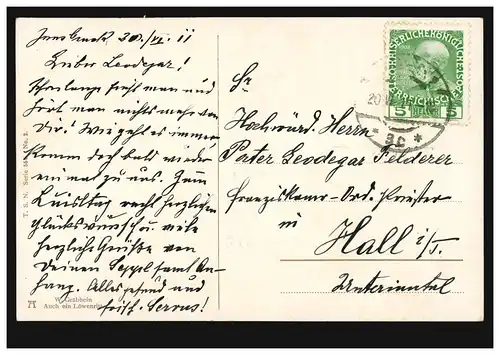 Innsbruck 20./VI. 11
Lieber Leodegar!
Schon lange sieht man und
hört man nichts mehr von
Dir! Wie geht es immer
Komm doch bald wieder
einmal zu uns. Zum
recht herzlichen
Glückswunsch u. viele
herzliche Grüße von
Deinem Seppl samt An-
hang. Alles gesund und
frisch. Servus!
T. S. N. Serie No. 2.
W. Gräbhein
Auch ein Löwenritt
Sr
Hochwürd. Herrn
Pater Leodegar Felderer
Franziskaner-Ord. Priester
in
Hall i/T.
Unterinntal
KAISERLICHE KÖNIGLICHE
ÖSTERREICHISCHE
5 5
20
* 3c *